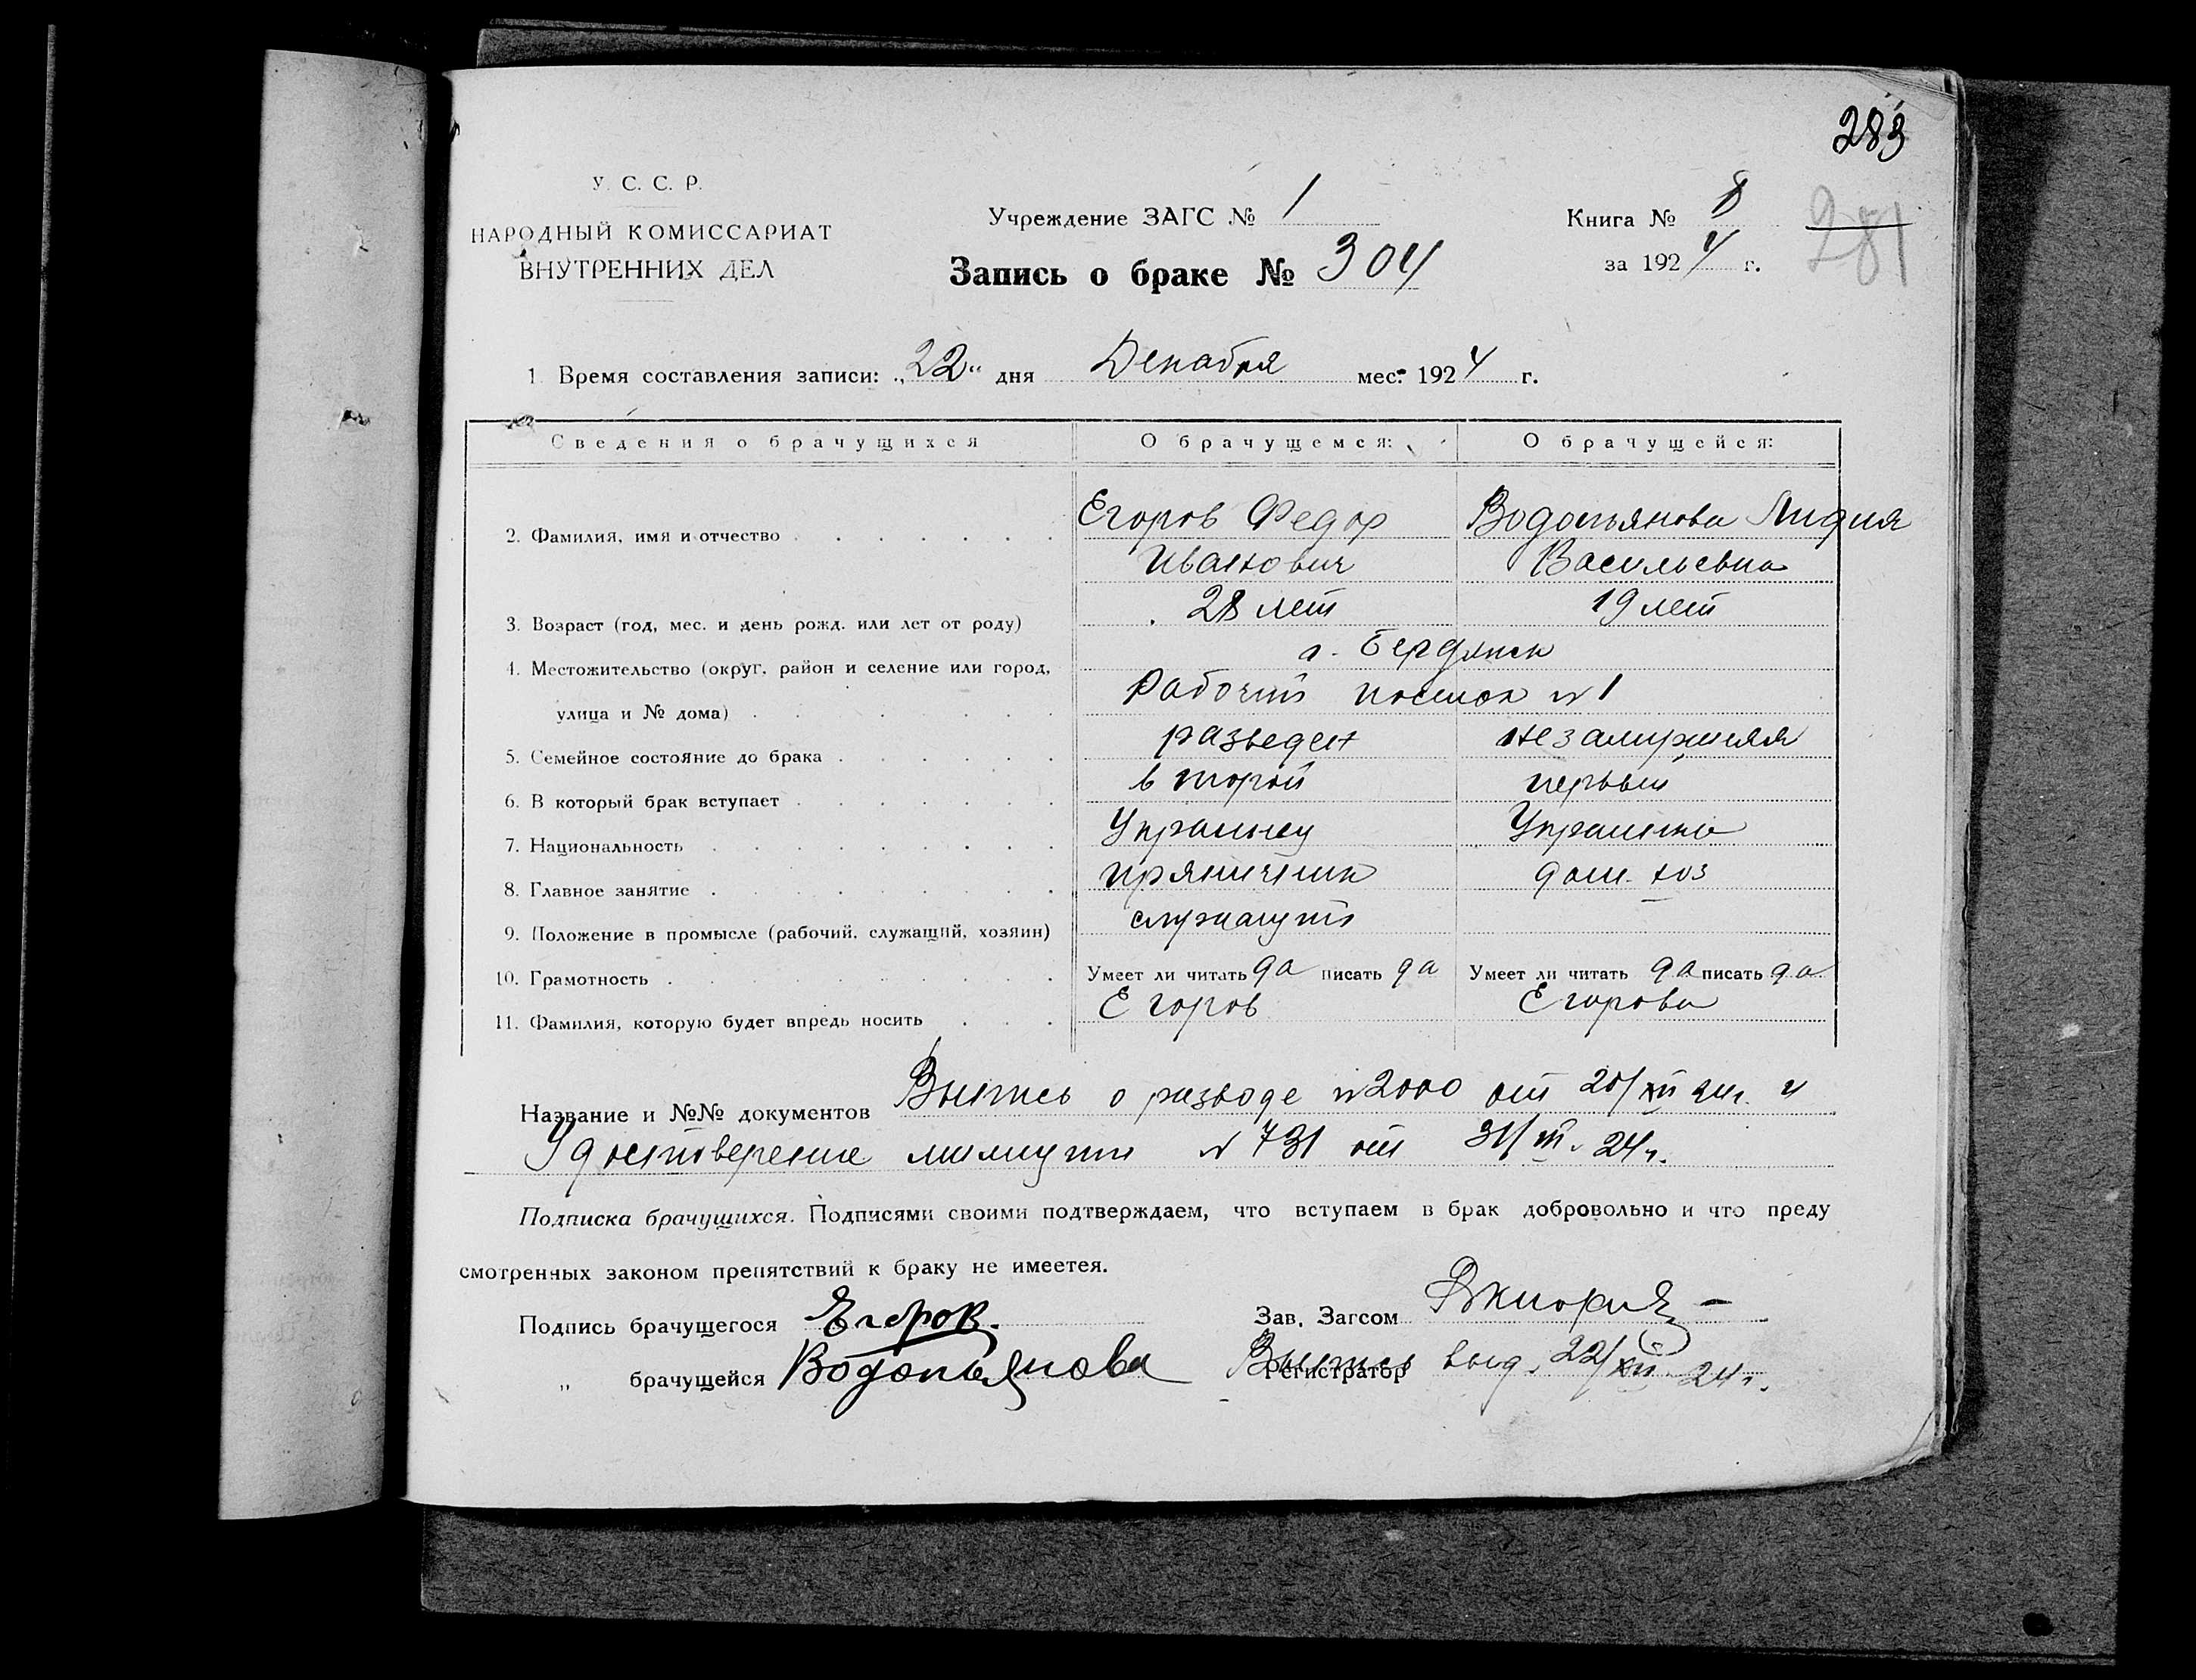 283
У. С. С. Р.
НАРОДНЫЙ КОМИССАРИАТ
ВНУТРЕННИХ ДЕЛ
Учреждение ЗАГС № 1
Запись о браке № 304
Книга № 8
за 1924 г.
281
1 Время составления записи: „22“ дня Декабря мес. 1924 г.
Сведения о брачущихся О брачущемся: О брачущейся:
2. Фамилия, имя и отчество Егоров Федор Водопьянова Лидия
Иванович Васильевна
3. Возраст (год, мес. и день рожд. или лет от роду) 28 лет 19 лет
4. Местожительство (округ, район и селение или город, г. Бердянск
улица и № дома) Рабочий поселок № 1
5. Семейное состояние до брака разведен незамужняя
6. В который брак вступает второй первый
7. Национальность Украинец Украинка
8. Главное занятие пряничник дом. хоз
9. Положение в промысле (рабочий, служащий, хозяин) служащий
10. Грамотность Умеет ли читать да писать да Умеет ли читать да писать да
11. Фамилия, которую будет впредь носить Егоров Егорова
Название и №№ документов Выпись о разводе № 2000 от 20/XII 24г. и
Удостоверение милиции № 731 от 31/III 24г.
Подписка брачущихся. Подписями своими подтверждаем, что вступаем в брак добровольно и что преду
смотренных законом препятствий к браку не имеетея.
Подпись брачущегося Егоров. Зав. Загсом
„ брачущейся Водопьянова Регистратор Выпись выд. 22/XII 24г.